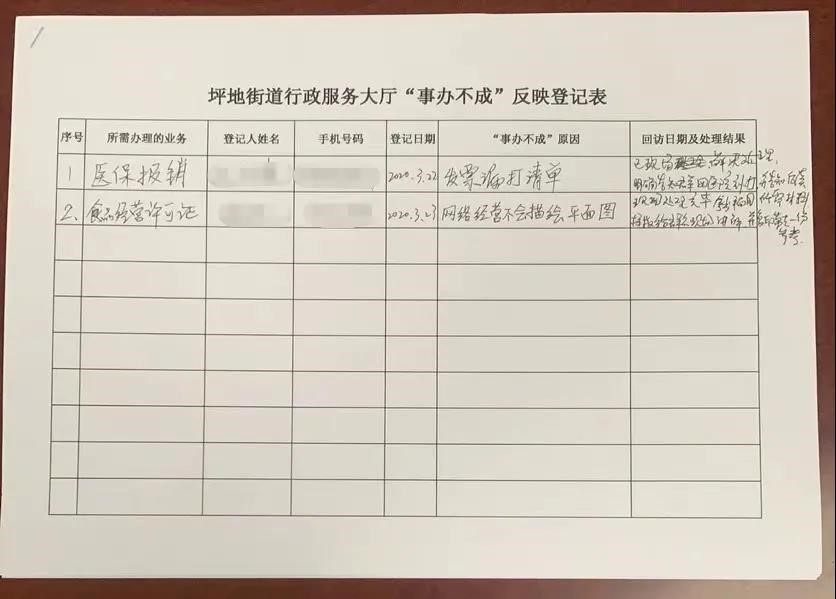 坪地街道行政服务大厅“事办不成”反映登记表
序号 所需办理的业务 登记人姓名 手机号码 登记日期 “事办不成”原因 回访日期及处理结果
1 医保报销 2020.3.22 发票漏打清单 已现场 解决处理,
2. 食品经营许可证 2020.3.23 网络经营不会描绘平面图
参考